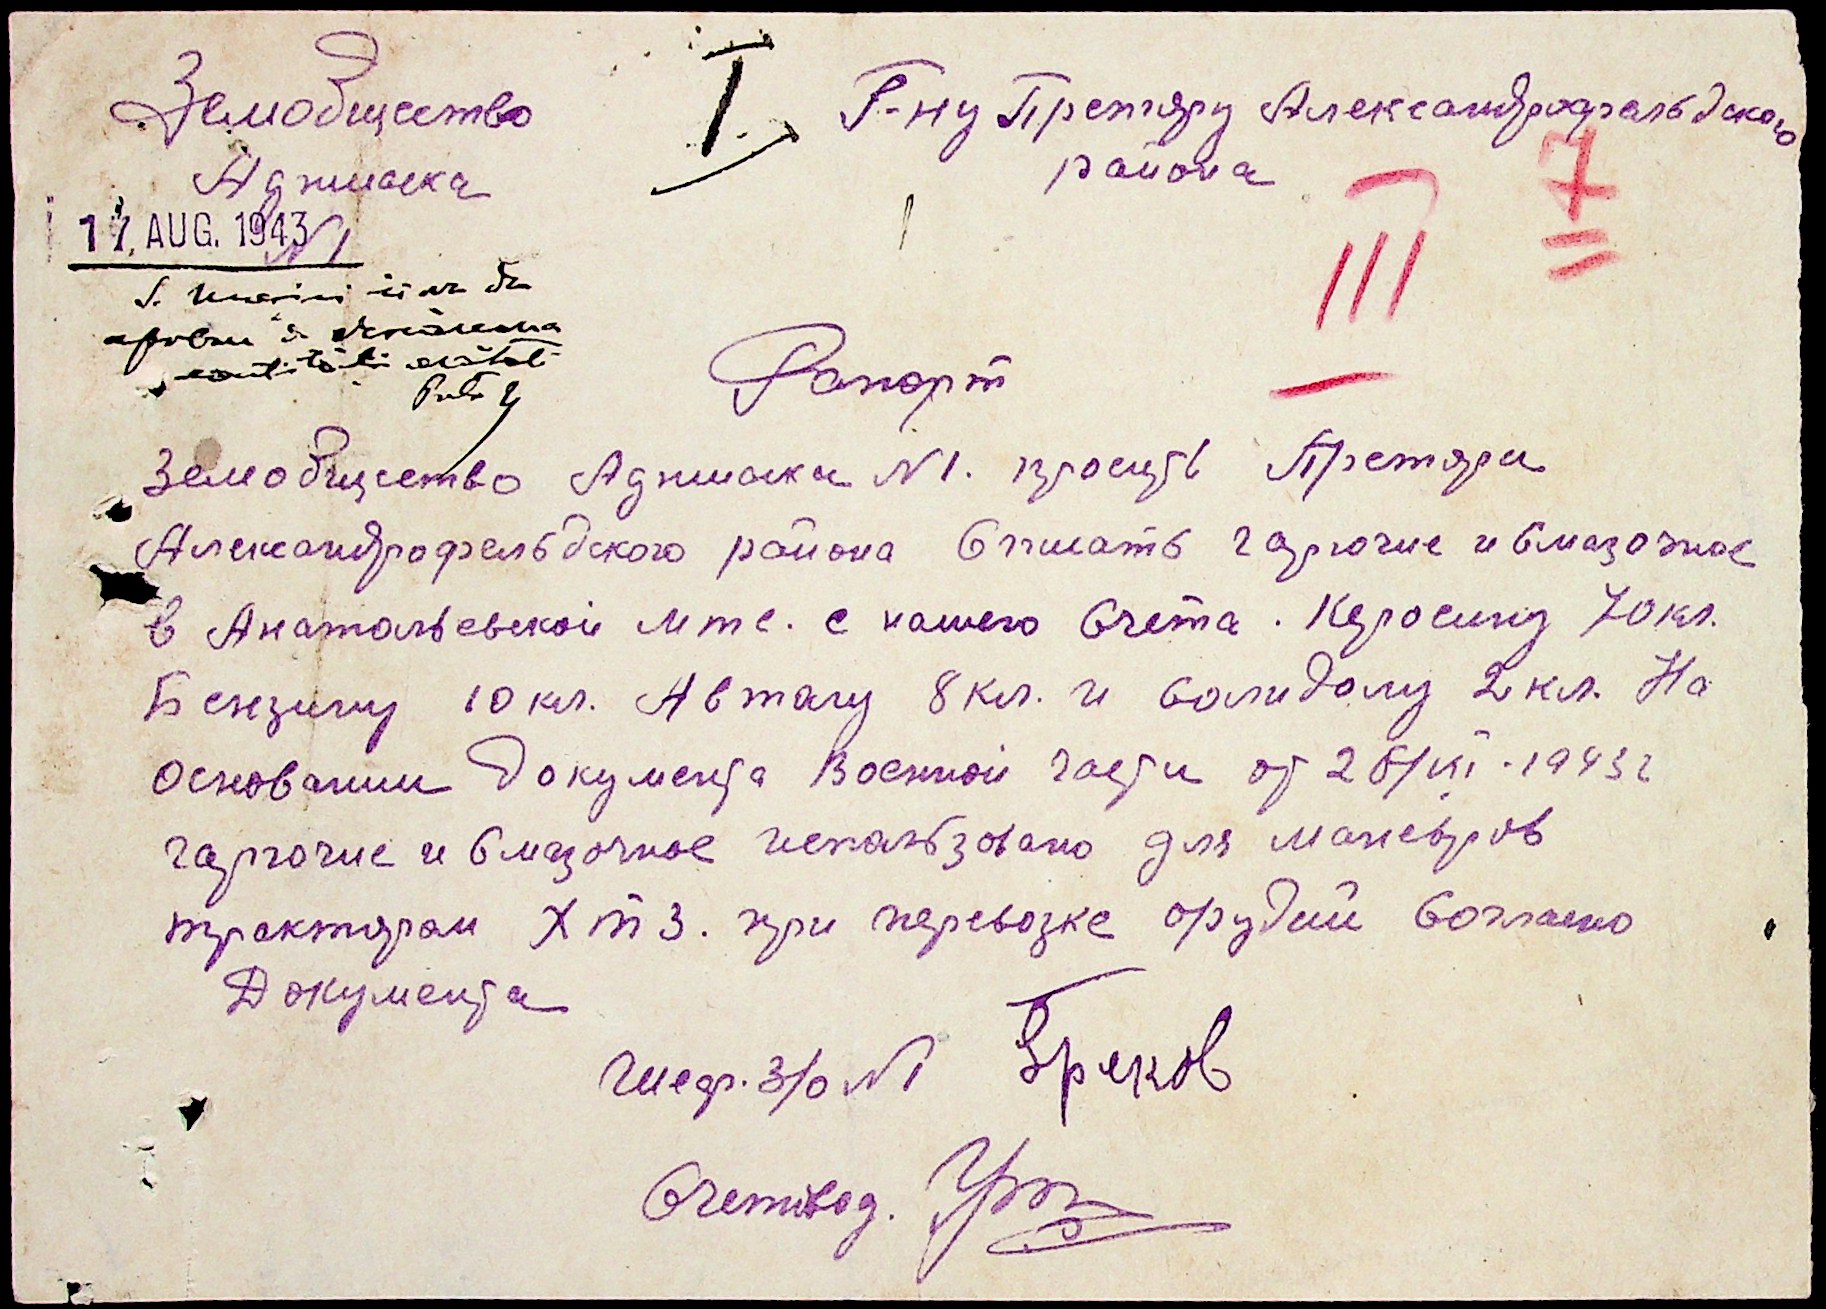 Земобщество
Аджиаска
N 1
17. AUG. 1943
I
Г-ну Претору Александрофельдского
района
7
III
Рапорт
Земобщество Аджиаска N 1. просить Претора
Александрофельдского района списать гарючие и смазочное
в Анатольевской мтс. с нашего счета. Керосину 70 кл.
Бензину 10 кл. Автолу 8 кл. и солидолу 2 кл. На
основании документа Военной части от 28/VII-1943 г
гарючие и смазочное использовано для маневров
трактором ХТЗ. при перевозке орудий согласно
Документа
Шеф. З/о N 1 Бряков
Счетовод.